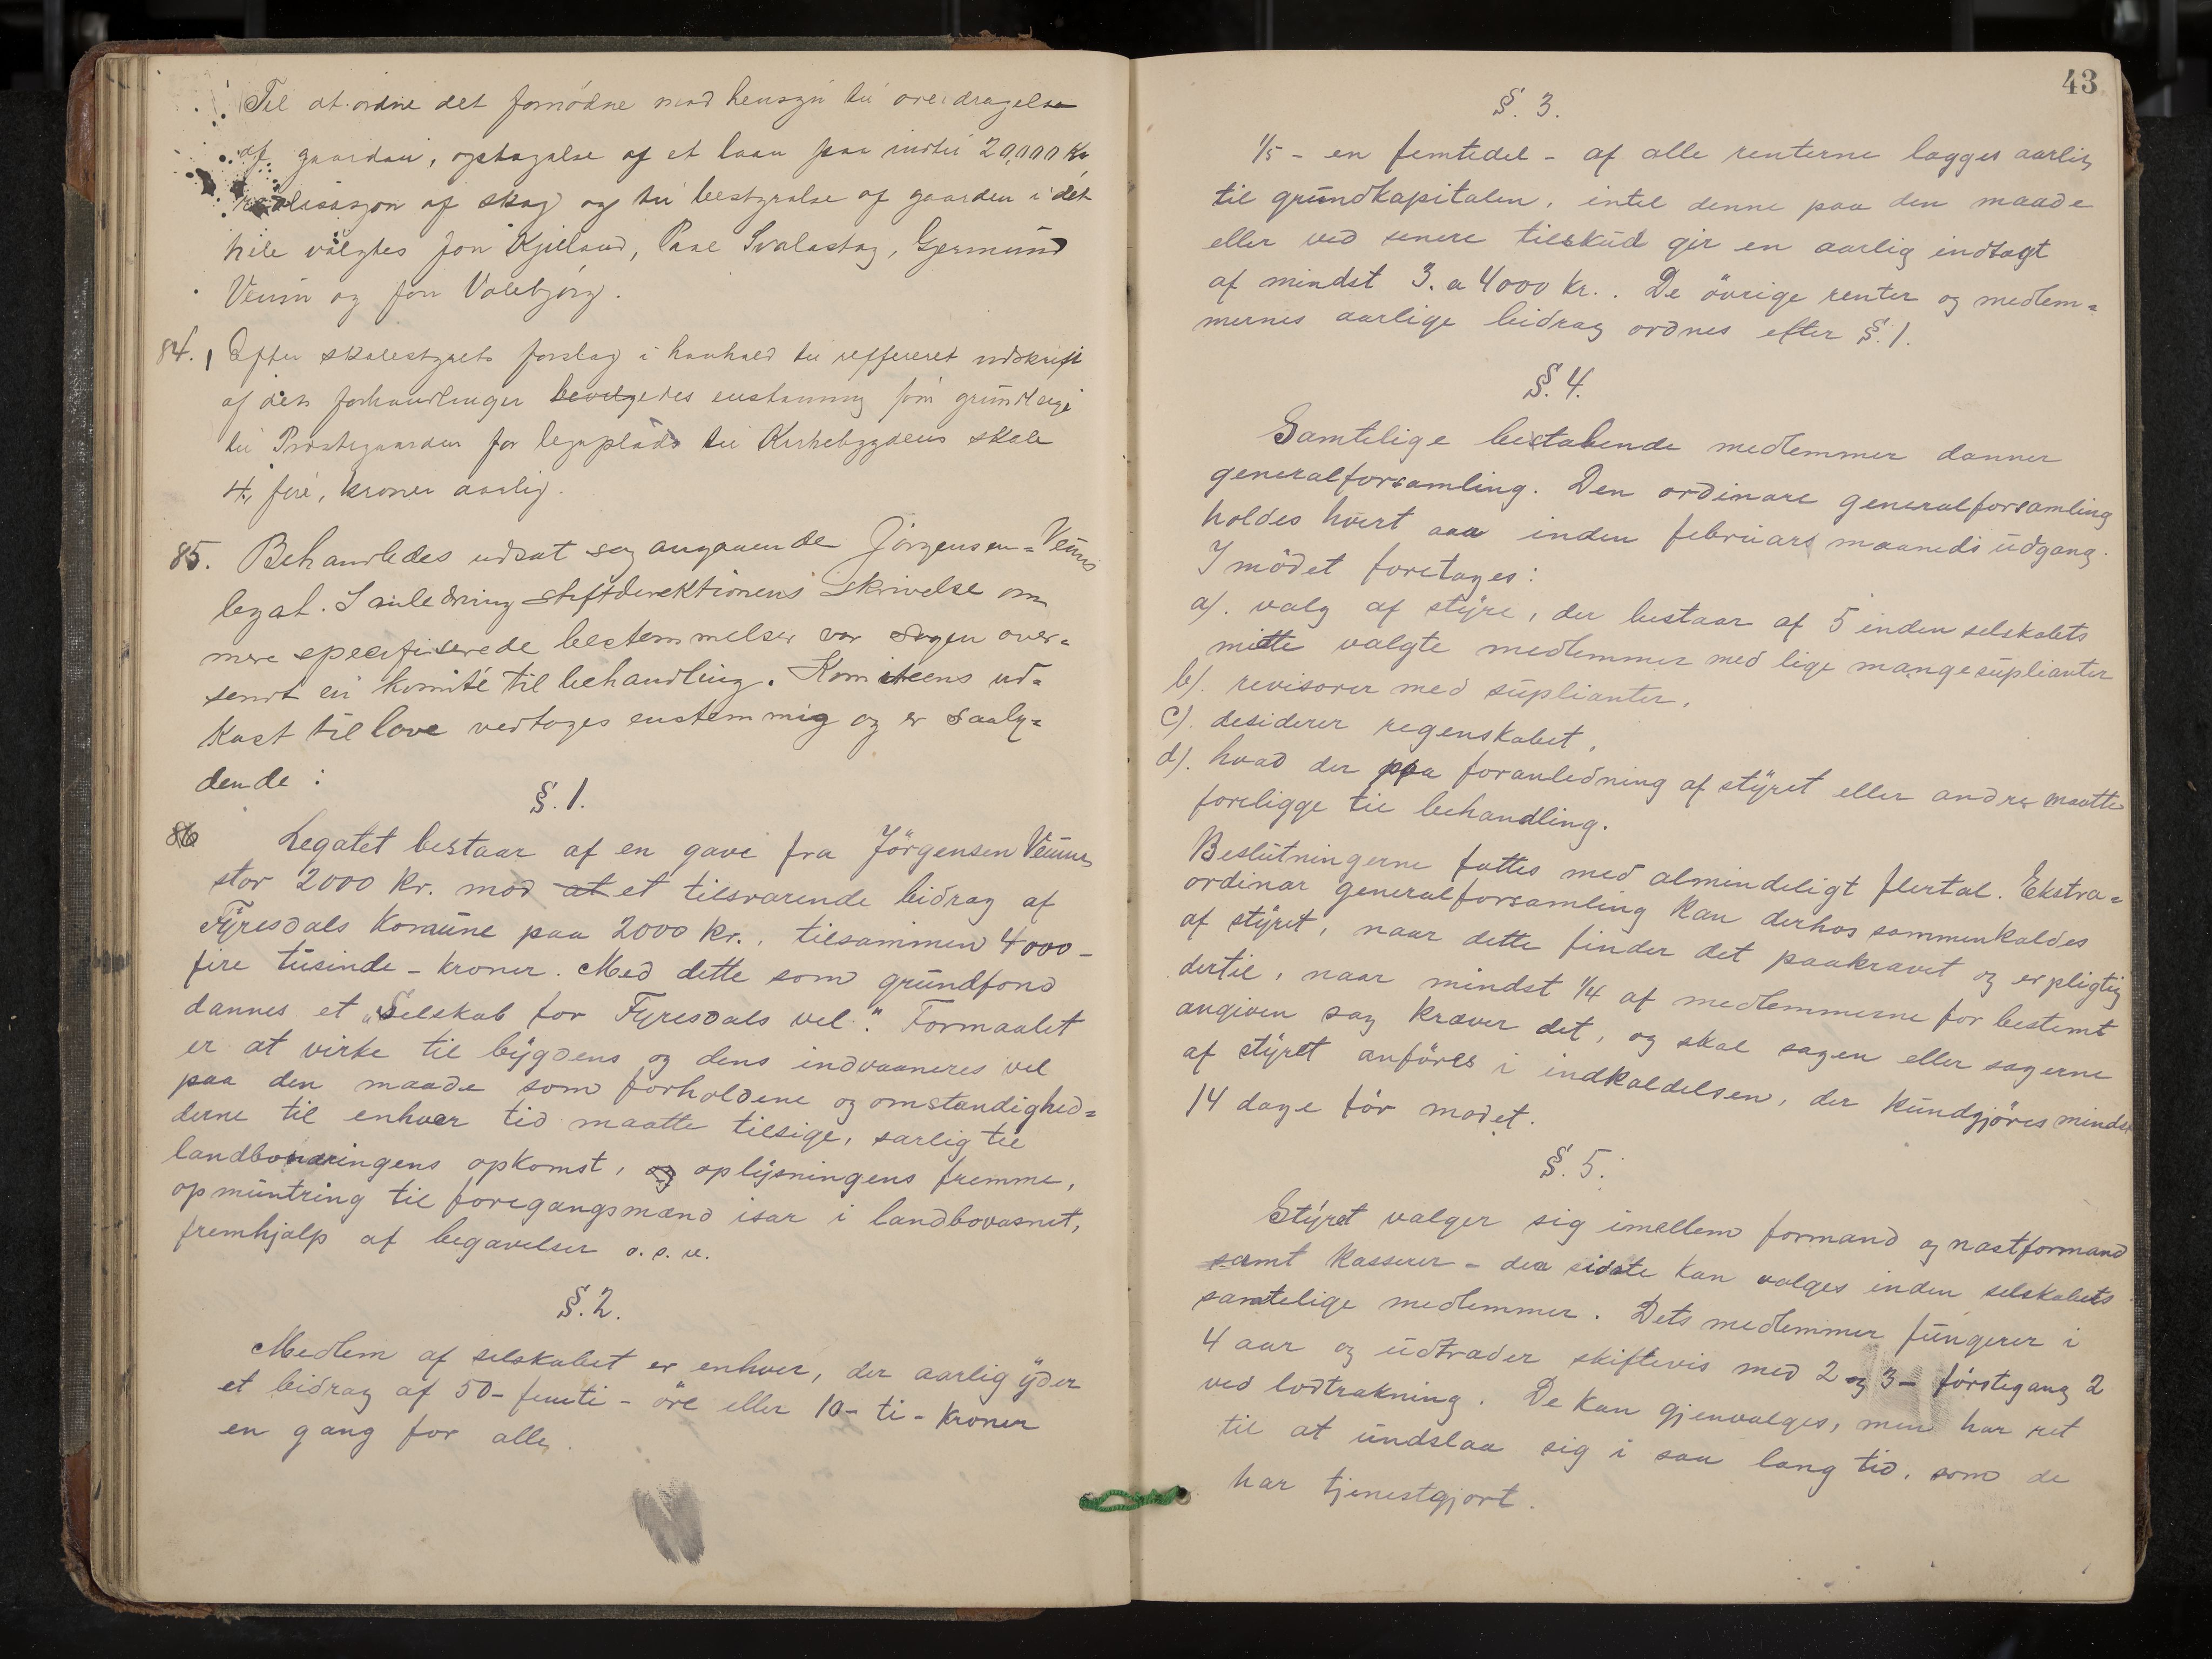 Til at ordne det fornødne med hensyn til overdragelse
af gaarden, optagelse af et laan paa indtil 20,000 Kr
realisasjon af skog og til bestyrelse af gaarden i det
hele valgtes Jon Kjilland, Paal Svalastog, Gjermund
Veum og Jon Valebjørg.
84. Efter skolestyrets forslag i henhold til reffereret udskrift
af dets forhandlinger bevilgedes enstemmig som grundleige
til Præstegaarden for legeplads til Kirkebygdens skole
4, fire, kroner aarlig.
85. Behandledes udsat sag angaaende Jörgensen-Veums
legat. I anledning stiftdirektionens skrivelse om
mere specifiserede bestemmelser var sagen over-
sendt en komité til behandling. Komiteens ud-
kast til love vedtoges enstemmig og er saaly-
dende:
§. 1.
86 Legatet bestaar af en gave fra Jörgensen Veum
stor 2000 kr. mod at et tilsvarende bidrag af
Fyresdals Komune paa 2000 kr., tilsammen 4000 -
fire tusinde - kroner. Med dette som grundfond
dannes et „Selskab for Fyresdals vel". Formaalet
er at virke til bygdens og dens indvaaneres vel
paa den maade som forholdene og omstændighed-
derne til enhver tid maatte tilsige, særlig til
landbonæringens opkomst, og oplysningens fremme,
opmuntring til foregangsmænd især i landbovæsnet,
fremhjælp af begavelser o.s.v.
§. 2.
Medlem af selskabet er enhver, der aarlig yder
et bidrag af 50 - femti - öre eller 10 - ti - kroner
en gang for alle.
43
§. 3.
1/5 - en femtedel - af alle renterne lægges aarlig
til grundkapitalen, intil denne paa den maade
eller ved senere tilskud gir en aarlig indtægt
af mindst 3. a 4000 kr.. De övrige renter og medlem-
mernes aarlige bidrag ordnes efter §. 1.
§. 4.
Samtlige bestaaende medlemmer danner
generalforsamling. Den ordinære generalforsamling
holdes hvert aar inden februars maaneds udgang.
I mödet foretages:
a). valg af styre, der bestaar af 5 inden selskabets
midte valgte medlemmer med lige mange suplianter
b). revisorer med suplianter.
c). desiderer regenskabet.
d). hvad der paa foranledning af styret eller andre maatte
foreligge til behandling.
Beslutningerne fattes med almindeligt flertal. Ekstra-
ordinær generalforsamling kan derhos sammenkaldes
af styret, naar dette finder det paakrævet og er pligtig
dertil, naar mindst 1/4 af medlemmerne for bestemt
angiven sag kræver det, og skal sagen eller sagerne
af styret anföres i indkaldelsen, der kundgjöres mindst
14 dage för mödet.
§. 5.
Styret vælger sig imellem formand og næstformand
samt kasserer - den sidste kan vælges inden selskabets
samtelige medlemmer. Dets medlemmer fungerer i
4 aar og udtræder skiftevis med 2 og 3 - förstegang 2
ved lodtrækning. De kan gjenvælges, men har ret
til at undslaa sig i saa lang tid, som de
har tjenestgjort.